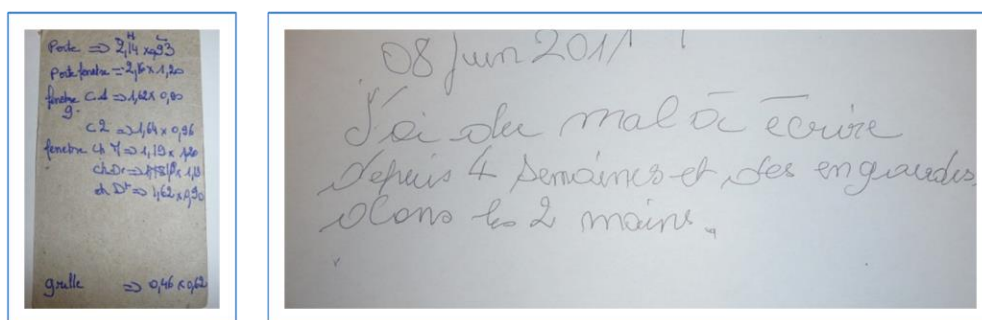 H L
Porte => 2,14 x 0,93
Porte fenêtre => 2,16 x 1,20
fenêtre C.1 => 1,62 x 0,90
g.
C2 => 1,64 x 0,96
fenêtre ch => 1,19 x 1,20
ch D
ch Dt => 1,62 x 0,90
grille => 0,46 x 0,62
08 Juin 2011
J'ai du mal à écrire
depuis 4 semaines et des engourdis
dans les 2 mains.